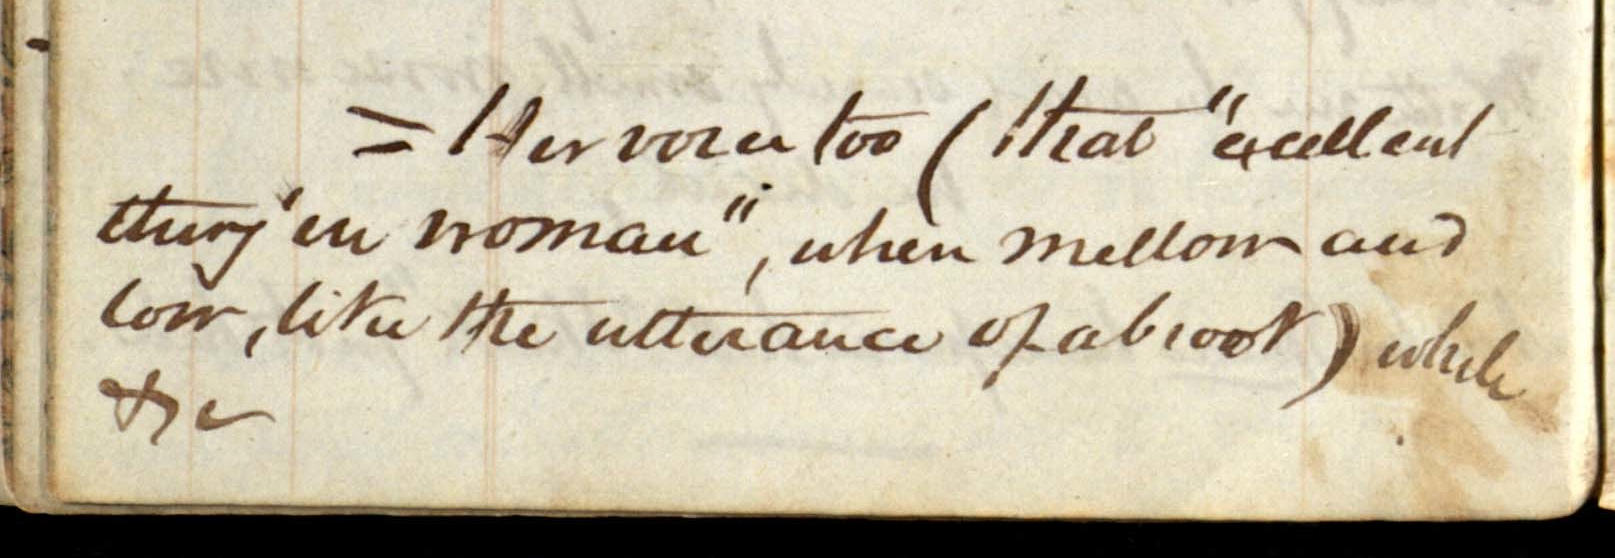 = Her voice too (that "excellent
thing" in woman", when mellow and
low, like the utterance of a brook) while
&c